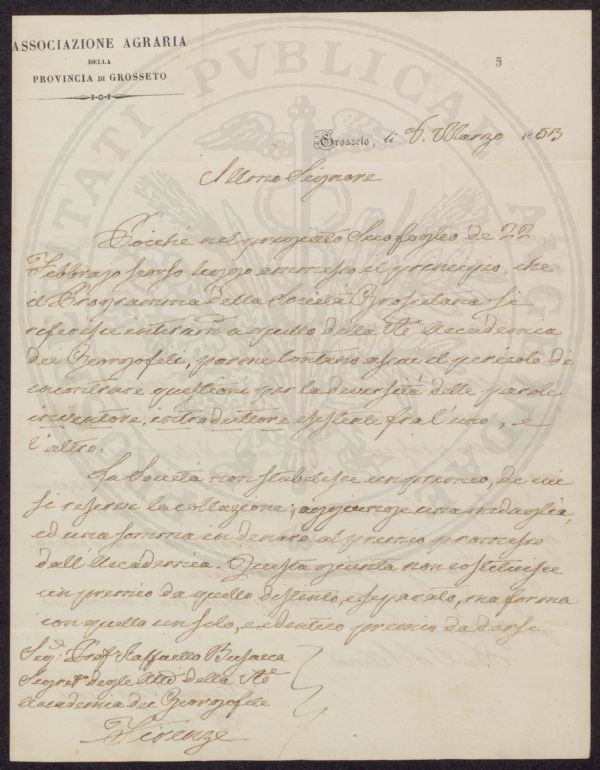 ASSOCIAZIONE AGRARIA
DELLA
PROVINCIA DI GROSSETO
5
Grosseto, li 6. Marzo 1853
Illmo Signore
Poiché nel pregiato Suo foglio de 22
Febbrajo scorso leggo ammesso il principio, che
il Programma della Società Grossetana si
referisce interam a quello della Re Accademia
dei Georgofili, parmi lontano assai il pericolo di
incontrare questioni per la diversità delle parole
inventore, introduttore esistente fra l'uno, e
l'altro.
La Società non stabilisce un premio, di cui
si reserve la collazione; aggiunge una medaglia,
ed una somma in denaro al premio promesso
dall'Accademia. Questa giunta non costituisce
un premio da quello distinto, e separato, ma forma
con quello un solo, e identico premio da darsi
Sig: Prof Raffaello Busacca
Segret degli Atti della Re
Accademia dei Georgofili
Firenze
PUBLICAE